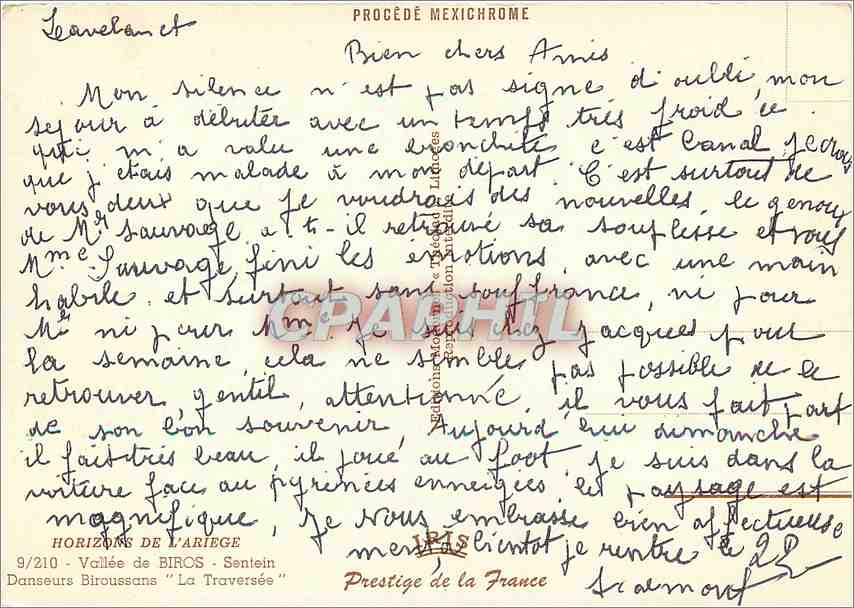 PROCÉDÉ MEXICHROME
Lavelanet
Bien chers Amis
Mon silence n'est pas signe d'oubli, mon
sejour à débuter avec un temps très froid ce
qui m'a valu une bronchite c'est banal, je crois
que j'étais malade à mon départ. C'est surtout de
vous deux que je voudrais des nouvelles, le genou
de Mr Sauvage a-t-il retrouvé sa souplesse et vous
Mme Sauvage fini les émotions, avec une main
habile et surtout sans souffrance, ni pour
Mr ni pour Mme. Je suis chez Jacques pour
la semaine, cela ne semble pas possible de le
retrouver, gentil, attentionné, il vous fait part
de son bon souvenir. Aujourd'hui dimanche
il fait très beau, il joue au foot, je suis dans la
voiture face au pyrénées enneigées, le paysage est
magnifique, Je vous embrasse bien affectueuse
ment à bientot je rentre le 22
HORIZONS DE L'ARIEGE
9/210 - Vallée de BIROS - Sentein
Danseurs Biroussans "La Traversée"
IRIS
Prestige de la France
Editions "Théojac" - Limoges
Reproduction interdite
CPAPHIL